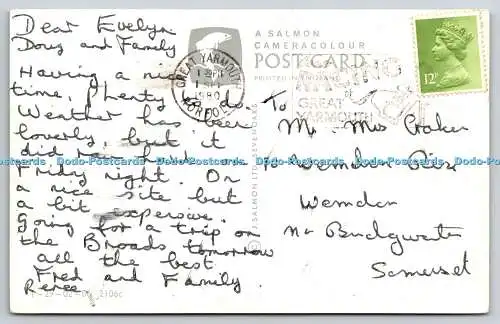 Dear Evelyn
Doug and Family
Having a nice
time, Plenty to do.
Weather has been
loverly, but it
did
Friday night. On
a nice site but
a bit expensive.
Going for a trip on
the Broads tomorrow
all the best
Fred and Family
Renee
1-29-02-0 2106c
A SALMON
CAMERACOLOUR
POST CARD
PRINTED IN ENGLAND
GREAT YARMOUTH
1980
RACING
AT
GREAT
YARMOUTH
12P
© J. SALMON LTD., SEVENOAKS
To
Mr. Mrs
Wemdon
Wemdon
Nr Bridgwater
Somerset
Dodo-Postcards Dodo-Postcards Dodo-Postcards Dodo-Postcards Dodo-Postcards Dodo-Postcards